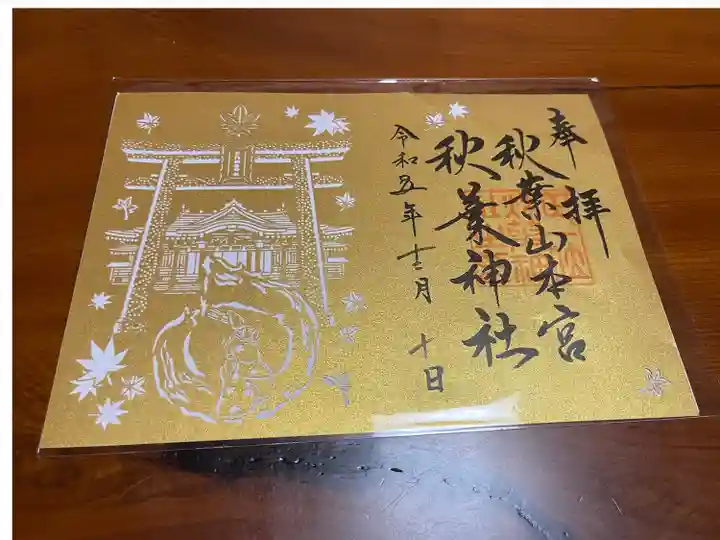 奉拝
秋葉山本宮
秋葉神社
令和五年十二月十日